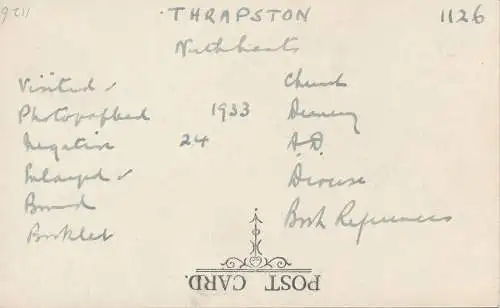 9211 THRAPSTON 1126
Northants
Visited ✓ Church
Photographed 1933 Deanery
Negative 24 A.D.
Enlarged ✓ Diocese
Bound Book References
Booklet
POST CARD.